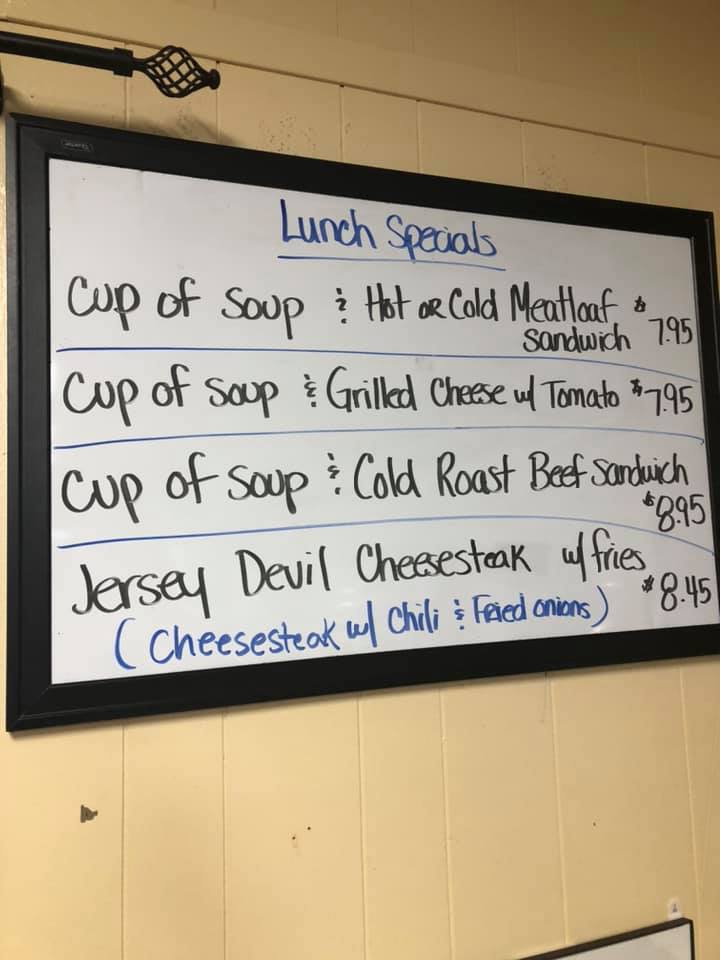 Lunch Specials
Cup of Soup & Hot or Cold Meatloaf
Sandwich $7.95
Cup of Soup & Grilled Cheese w/ Tomato $7.95
Cup of Soup & Cold Roast Beef Sandwich
$8.95
Jersey Devil Cheesesteak w/ fries
$8.45
(Cheesesteak w/ Chili & Fried onions)